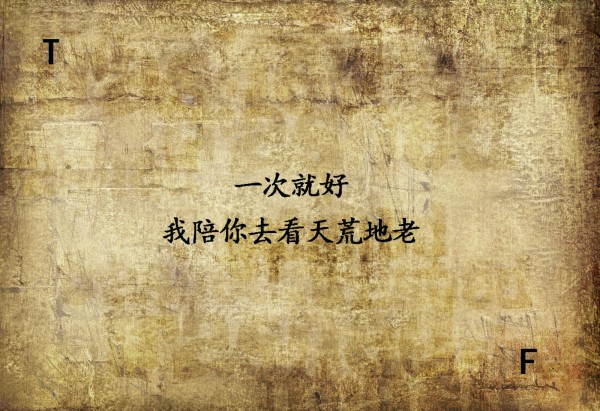 T
一次就好
我陪你去看天荒地老
F